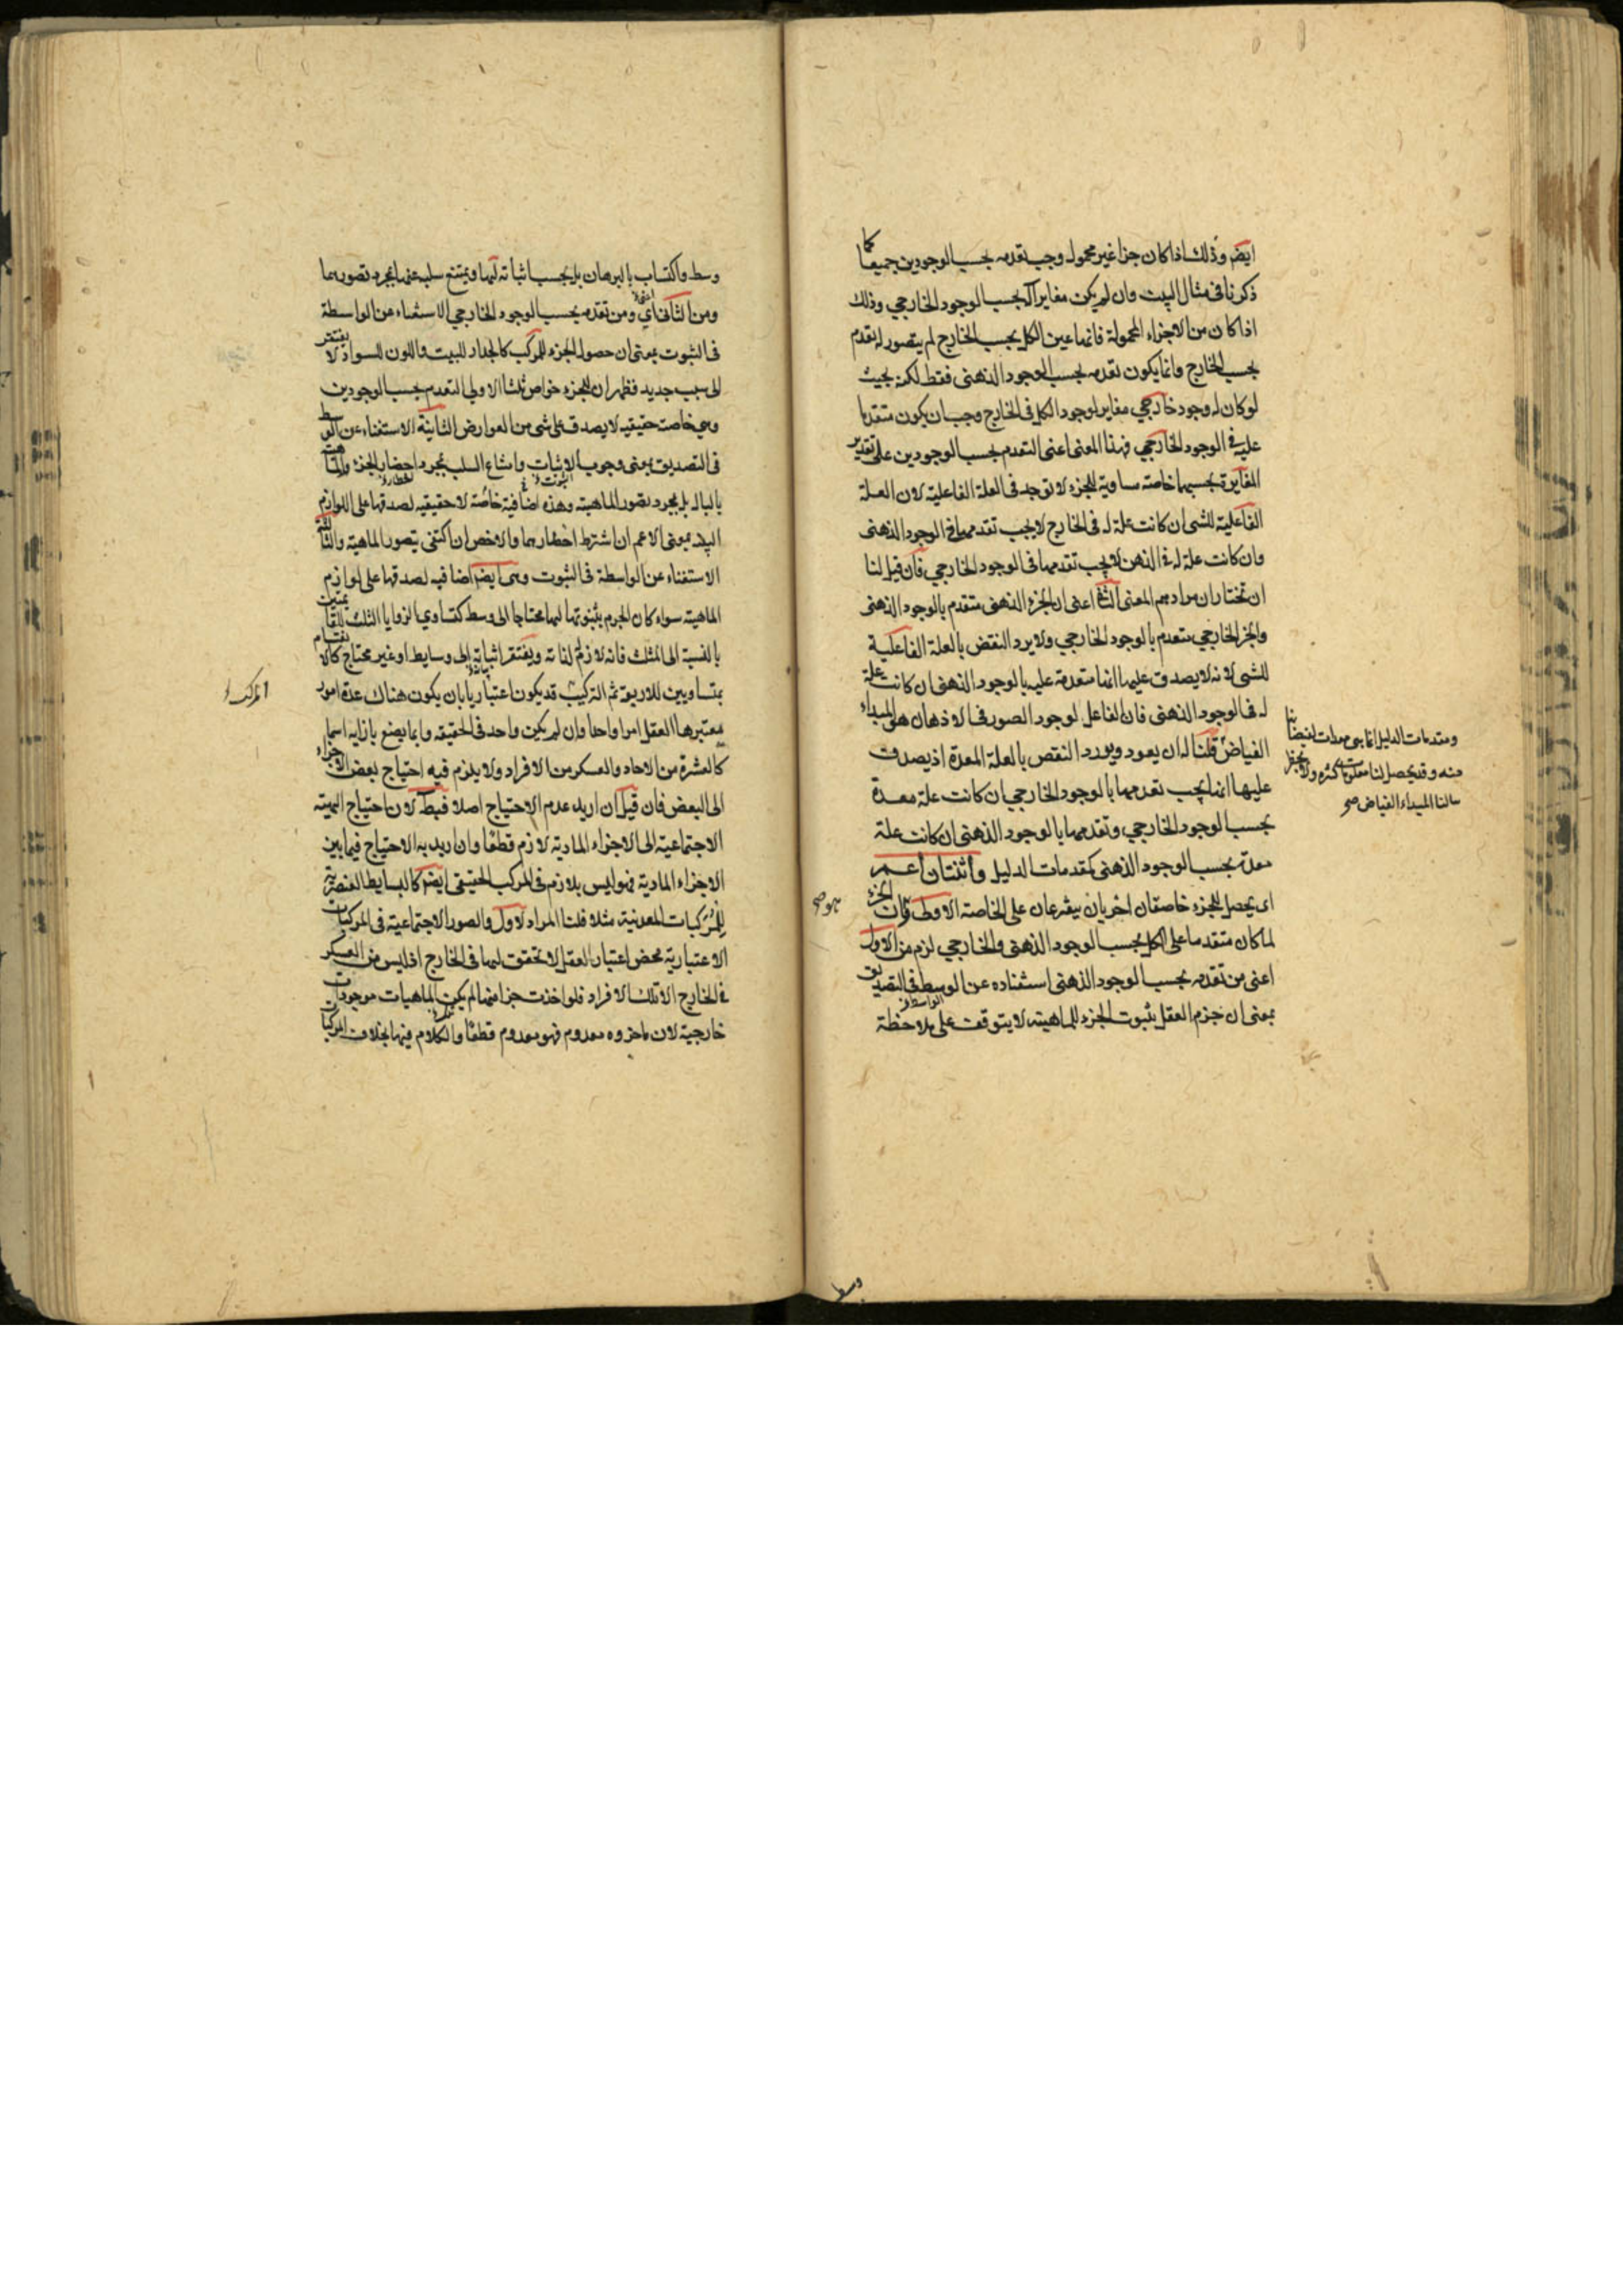 ايضم وذلك اذا كان جزا غير محمول وجب تقدمه بحسب الوجودين جميعا كما
ذكرنا فى مثال البيت وان لم يكن مغايرا له بحسب الوجود الخارجي وذلك
اذا كان من الاجزاء المحمولة فانها عين الكل بحسب الخارج لم يتصور له تقدم
بحسب الخارج وانما يكون تقدمه بحسب الوجود الذهنى فقط لكنه بحيث
لو كان له وجود خارجي مغاير لوجود الكل فى الخارج وجب ان يكون متقدما
عليه فى الوجود الخارجي فهذا المعنى اعنى التقدم بحسب الوجودين على تقدير
المغايرة بحسبهما خاصة مساوية للجزء لا توجد فى العلة الفاعلية لان العلة
الفاعلية للشى ان كانت علة له فى الخارج لا يجب تقدمها فى الوجود الذهنى
وان كانت علة له فى الذهن لا يجب تقدمها فى الوجود الخارجي فان قيل لنا
ان نختار ان مرادهم المعنى الثانى اعنى ان الجزء الذهنى متقدم بالوجود الذهنى
والجزء الخارجي متقدم بالوجود الخارجي ولا يرد النقض بالعلة الفاعلية
للشى لانه لا يصدق عليها انها متقدمة عليه بالوجود الذهنى ان كانت علة
له فى الوجود الذهنى فان الفاعل لوجود الصور فى الاذهان هو المبداء
الفياض قلنا له ان يعود ويورد النقص بالعلة المعدة اذ يصدق
عليها انها يجب تقدمها بالوجود الخارجي ان كانت علة معدة
بحسب الوجود الخارجي وتقدمها بالوجود الذهنى ان كانت علة
معدة بحسب الوجود الذهنى كمقدمات الدليل واثنتان اعم
اى يحصل للجزء خاصتان اخريان يتفرعان على الخاصة الاولى فان الجزء
لما كان متقدما على الكل بحسب الوجود الذهنى والخارجي لزم من الاول
اعنى من تقدمه بحسب الوجود الذهنى استغناده عن الوسط فى التصديق
بمعنى ان جزم العقل بثبوت الجزء للماهية لا يتوقف على ملاحظة
ومقدمات الدليل انما هى معدات لفيضانها
منه وقد يحصل لنا معلومات كثره ولا يخطر
ببالنا المبداء الفياض صح
وسط
وسط واكتساب بالبرهان بل يجب اثباته لها ويمتنع سلبه عنها بمجرد تصورهما
ومن الثانى اي ومن تقدمه بحسب الوجود الخارجي الاستغناء عن الواسطة
فى الثبوت بمعنى ان حصول الجزء للمركب كالجدار للبيت واللون للسواد لا يفتقر
الى سبب جديد فظهر ان للجزء خواص ثلثا الاولى التقدم بحسب الوجودين
وهى خاصة حقيقية لا يصدق على شى من العوارض الثانية الاستغناء عن الوسط
فى التصديق بمعنى وجوب الاثبات وامتناع السلب بمجرد احضار الجزء والماهية
بالبال بل بمجرد تصور الماهية وهذه اضافية خاصة لا حقيقية لصدقها على اللوازم
البينة بمعنى الاعم ان اشترط اخطارهما والاخص ان اكتفى بتصور الماهية والثالثة
الاستغناء عن الواسطة فى الثبوت وهى ايضم اضافيه لصدقها على لوازم
الماهية سواء كان الجزم بثبوتها لها محتاجا الى وسط كتساوي الزوايا الثلث للقائمتين
بالنسبة الى المثلث فانه لازم لذاته ويفتقر اثباته الى وسايط او غير محتاج كالانقسام
بمتساويين للاربعة ثم التركيب قد يكون اعتباريا بان يكون هناك عدة امور
يعتبرها العقل امرا واحدا وان لم يكن واحد فى الحقيقة وربما يضع بازايه اسما
كالعشرة من الاحاد والعسكر من الافراد ولا يلزم فيه احتياج بعض الاجزاء
الى البعض فان قيل ان اريد عدم الاحتياج اصلا فبط لان احتياج الهيئة
الاجتماعية الى الاجزاء المادية لازم قطعا وان اريد به الاحتياج فيما بين
الاجزاء المادية فهو ليس بلازم فى المركب الحقيقى ايضم كالبسايط العنصرية
للمركبات المعدنية مثلا قلنا المراد الاول والصور الاجتماعية فى المركبات
الاعتبارية محض اعتبار العقل لا تحقق لها فى الخارج اذ ليس من العسكر
فى الخارج الا تلك الافراد فلو اخذت جزا منها لم يكن الماهيات موجودات
خارجية لان ما جزوه معدوم فهو معدوم قطعا والكلام فيها بخلاف المركبات
المركب